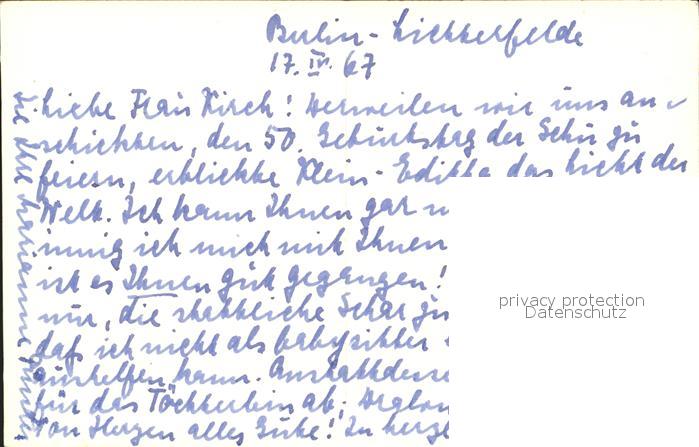 Berlin-Lichterfelde
17. IV. 67
Liebe Frau Kirch! Derweilen wir uns an-
schickten, den 50. Geburtstag der Schu zu
feiern, erblickte Klein-Editha das Licht der
Welt. Ich kann Ihnen gar
innig ich mich mit Ihnen
ist es Ihnen gut gegangen!
nur, die stattliche Schar zu
daß ich nicht als babysitter
aushelfen kann. Anstattdesse
für das Töchterlein ab; Dralon
Von Herzen alles Gute! In herz
privacy protection
Datenschutz